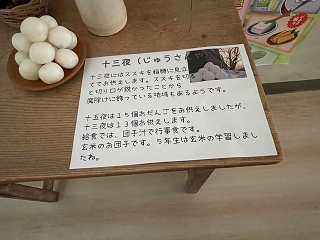 十三夜（じゅうさん
十三夜にはススキを稲穂に見立
ててお供えします。ススキを切る
と切り口が鋭かったことから
魔除けに飾っている地域もあるようです。
十五夜は１５個おだんごをお供えしましたが、
十三夜は１３個お供えします。
給食では、団子汁で行事食です。
玄米のお団子です。５年生は玄米の学習しまし
たね。